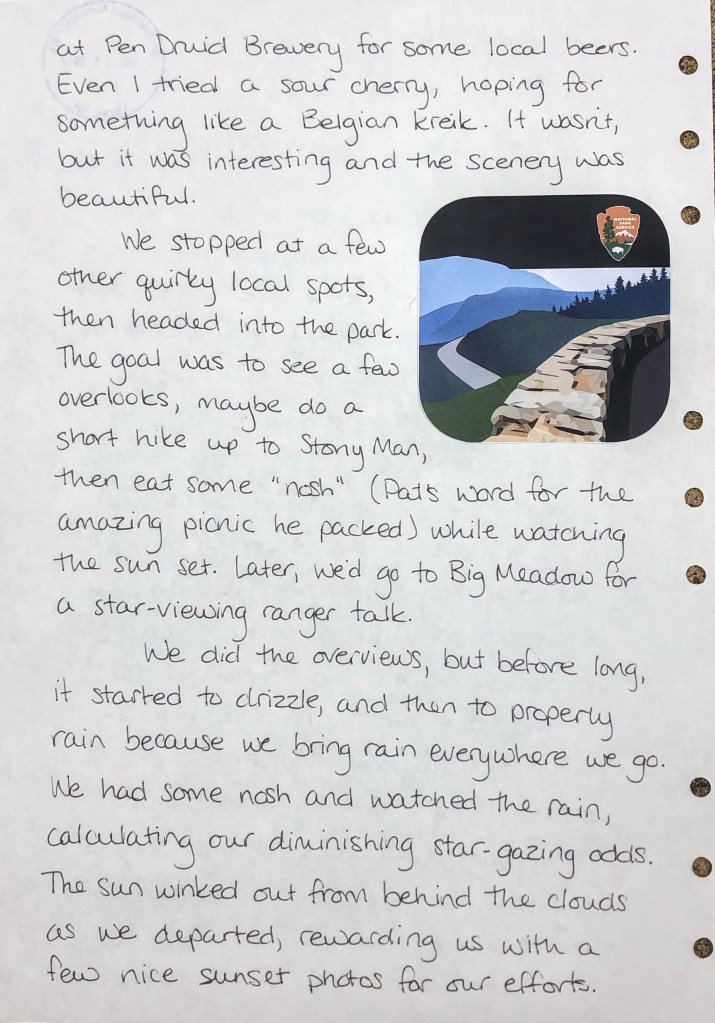 at Pen Druid Brewery for some local beers.
Even I tried a sour cherry, hoping for
something like a Belgian kreik. It wasn't,
but it was interesting and the scenery was
beautiful.
We stopped at a few
other quirky local spots,
then headed into the park.
The goal was to see a few
overlooks, maybe do a
short hike up to Stony Man,
then eat some "nosh" (Pat's word for the
amazing picnic he packed) while watching
the sun set. Later, we'd go to Big Meadow for
a star-viewing ranger talk.
We did the overviews, but before long,
it started to drizzle, and then to properly
rain because we bring rain everywhere we go.
We had some nosh and watched the rain,
calculating our diminishing star-gazing odds.
The sun winked out from behind the clouds
as we departed, rewarding us with a
few nice sunset photos for our efforts.
NATIONAL
PARK
SERVICE